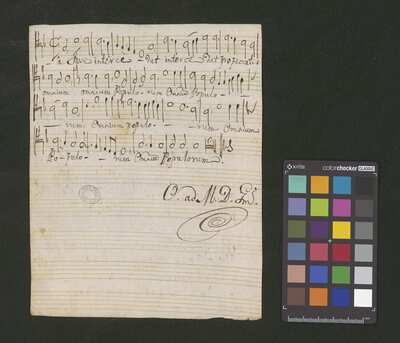 interce - det interce - det pro peccatis
omnium omnium Populo - rum Omnium Populo -
- rum. Omnium populo - - rum Omnium
Po - pulo - - rum Omnium Populorum.
O. ad M. D. G.
x-rite colorchecker CLASSIC